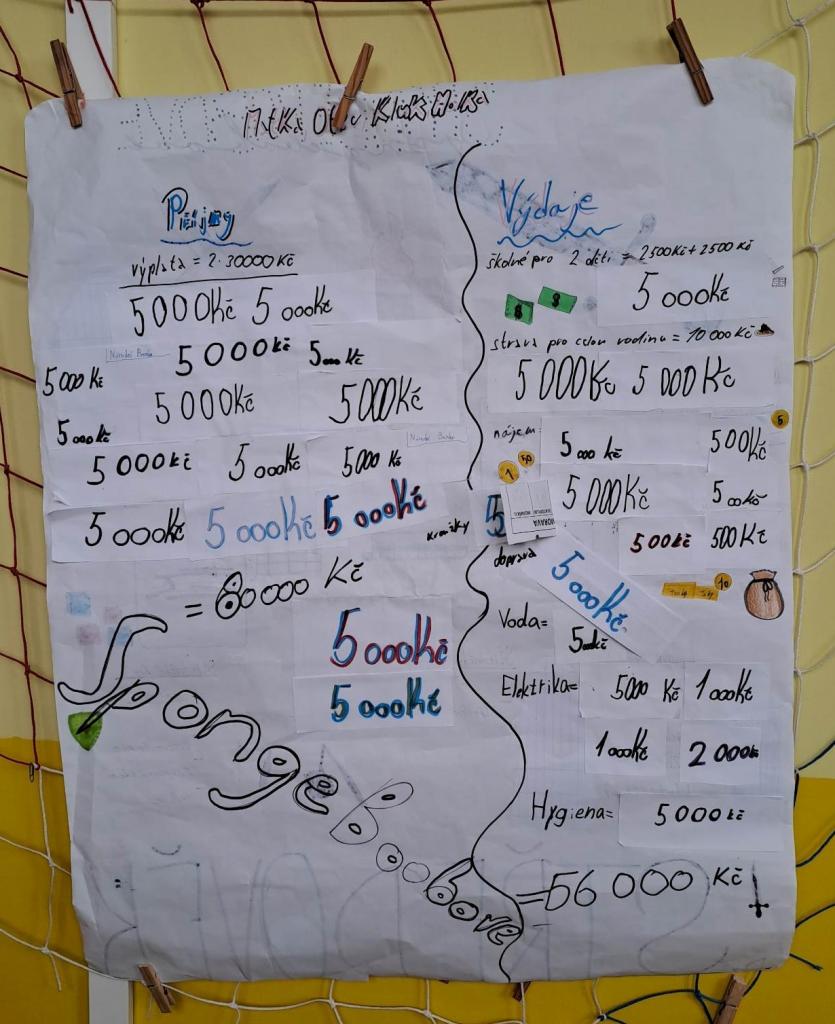 Matka Otec Kluk Holka
Příjmy
výplata = 2·30000 Kč
5000Kč 5000Kč
5000 Kč
Národní Banka
5000Kč
5000 Kč
5000Kč
5000Kč
5000Kč
5000Kč
5000Kč
5000 Kč
Národní Banka
5000Kč
5000Kč
5000Kč
= 60000 Kč
5000Kč
5000Kč
SpongeBoobové
Výdaje
školné pro 2 děti = 2500Kč+2500 Kč
5000Kč
$ $
strava pro celou rodinu = 10 000 Kč
5000Kč 5000Kč
nájem=
5000 Kč
500Kč
5
1
50
5000Kč
500Kč
kroužky
5
MORAVA
500Kč
500Kč
doprava
5000Kč
10
Voda=
500Kč
Elektrika=
5000 Kč
1000Kč
1000Kč
2000Kč
Hygiena=
5000Kč
=56 000 Kč